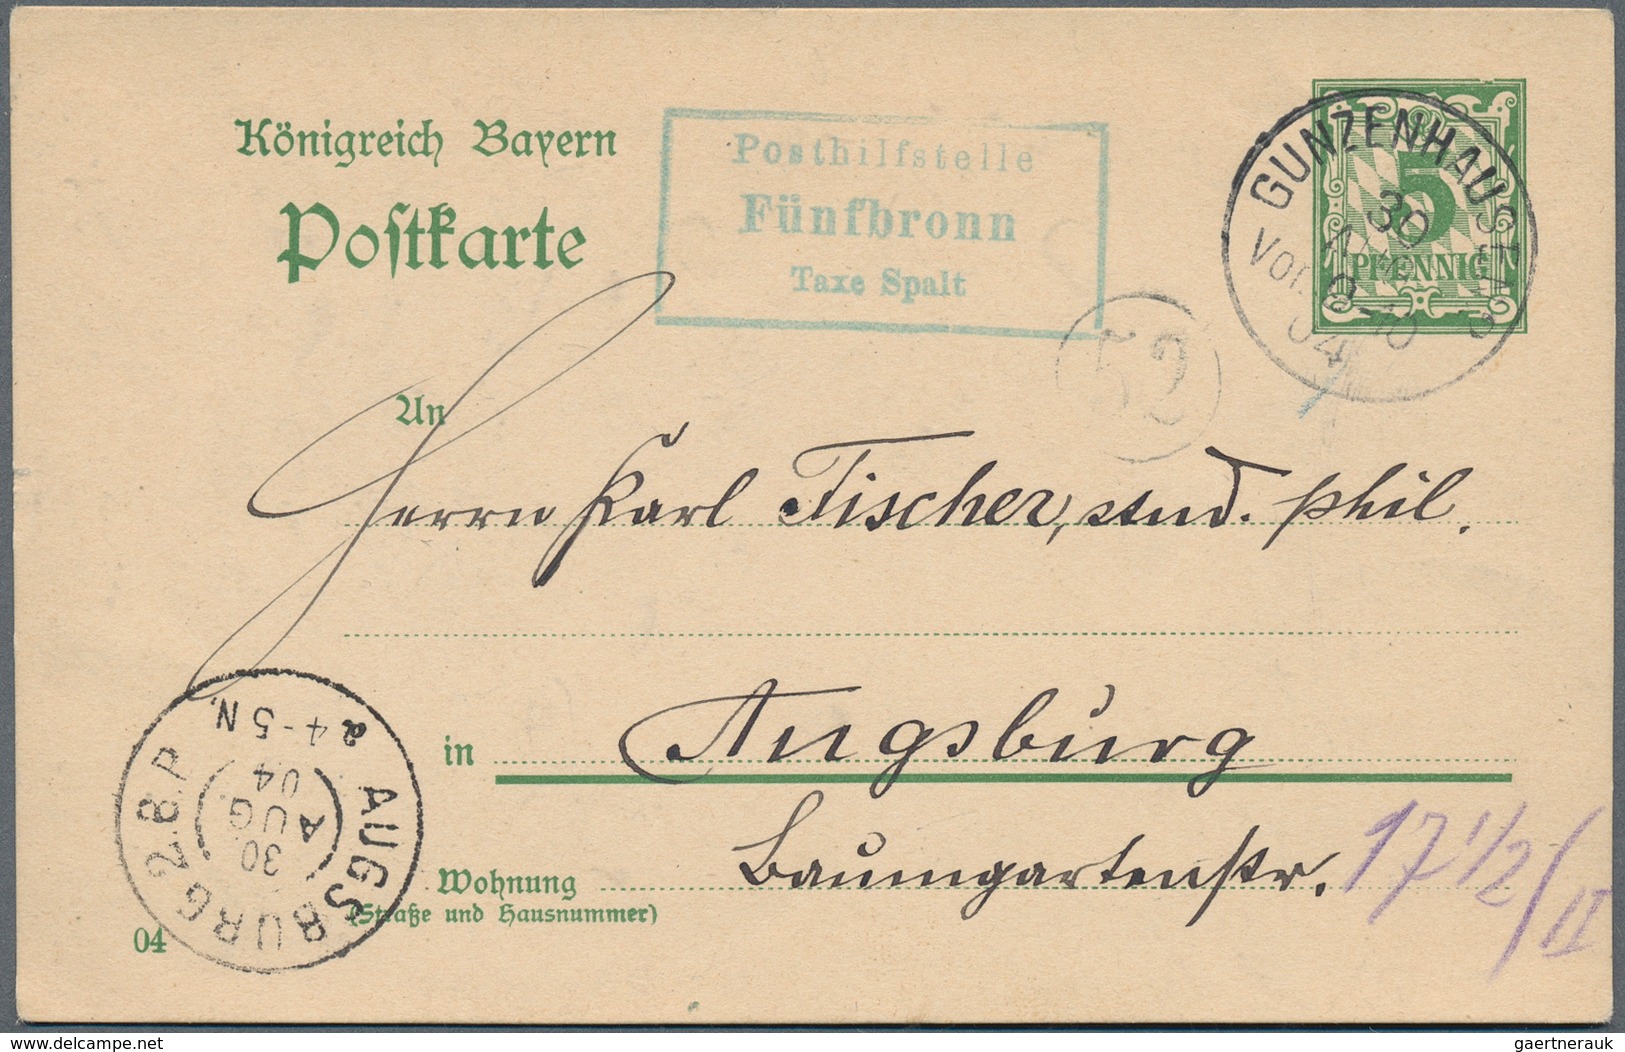 Königreich Bayern
Postkarte
Posthilfstelle
Fünfbronn
Taxe Spalt
GUNZENHAUSEN
30
Vor. 9-10
04
5
PFENNIG
52
An
Herrn Karl Fischer, stud. phil.
in Augsburg
Wohnung Baumgartenstr. 17 1/2 / II
(Straße und Hausnummer)
04
AUGSBURG 2.B.P.
30
AUG
04
4-5 N.
delcampe.net
gaertnerauk